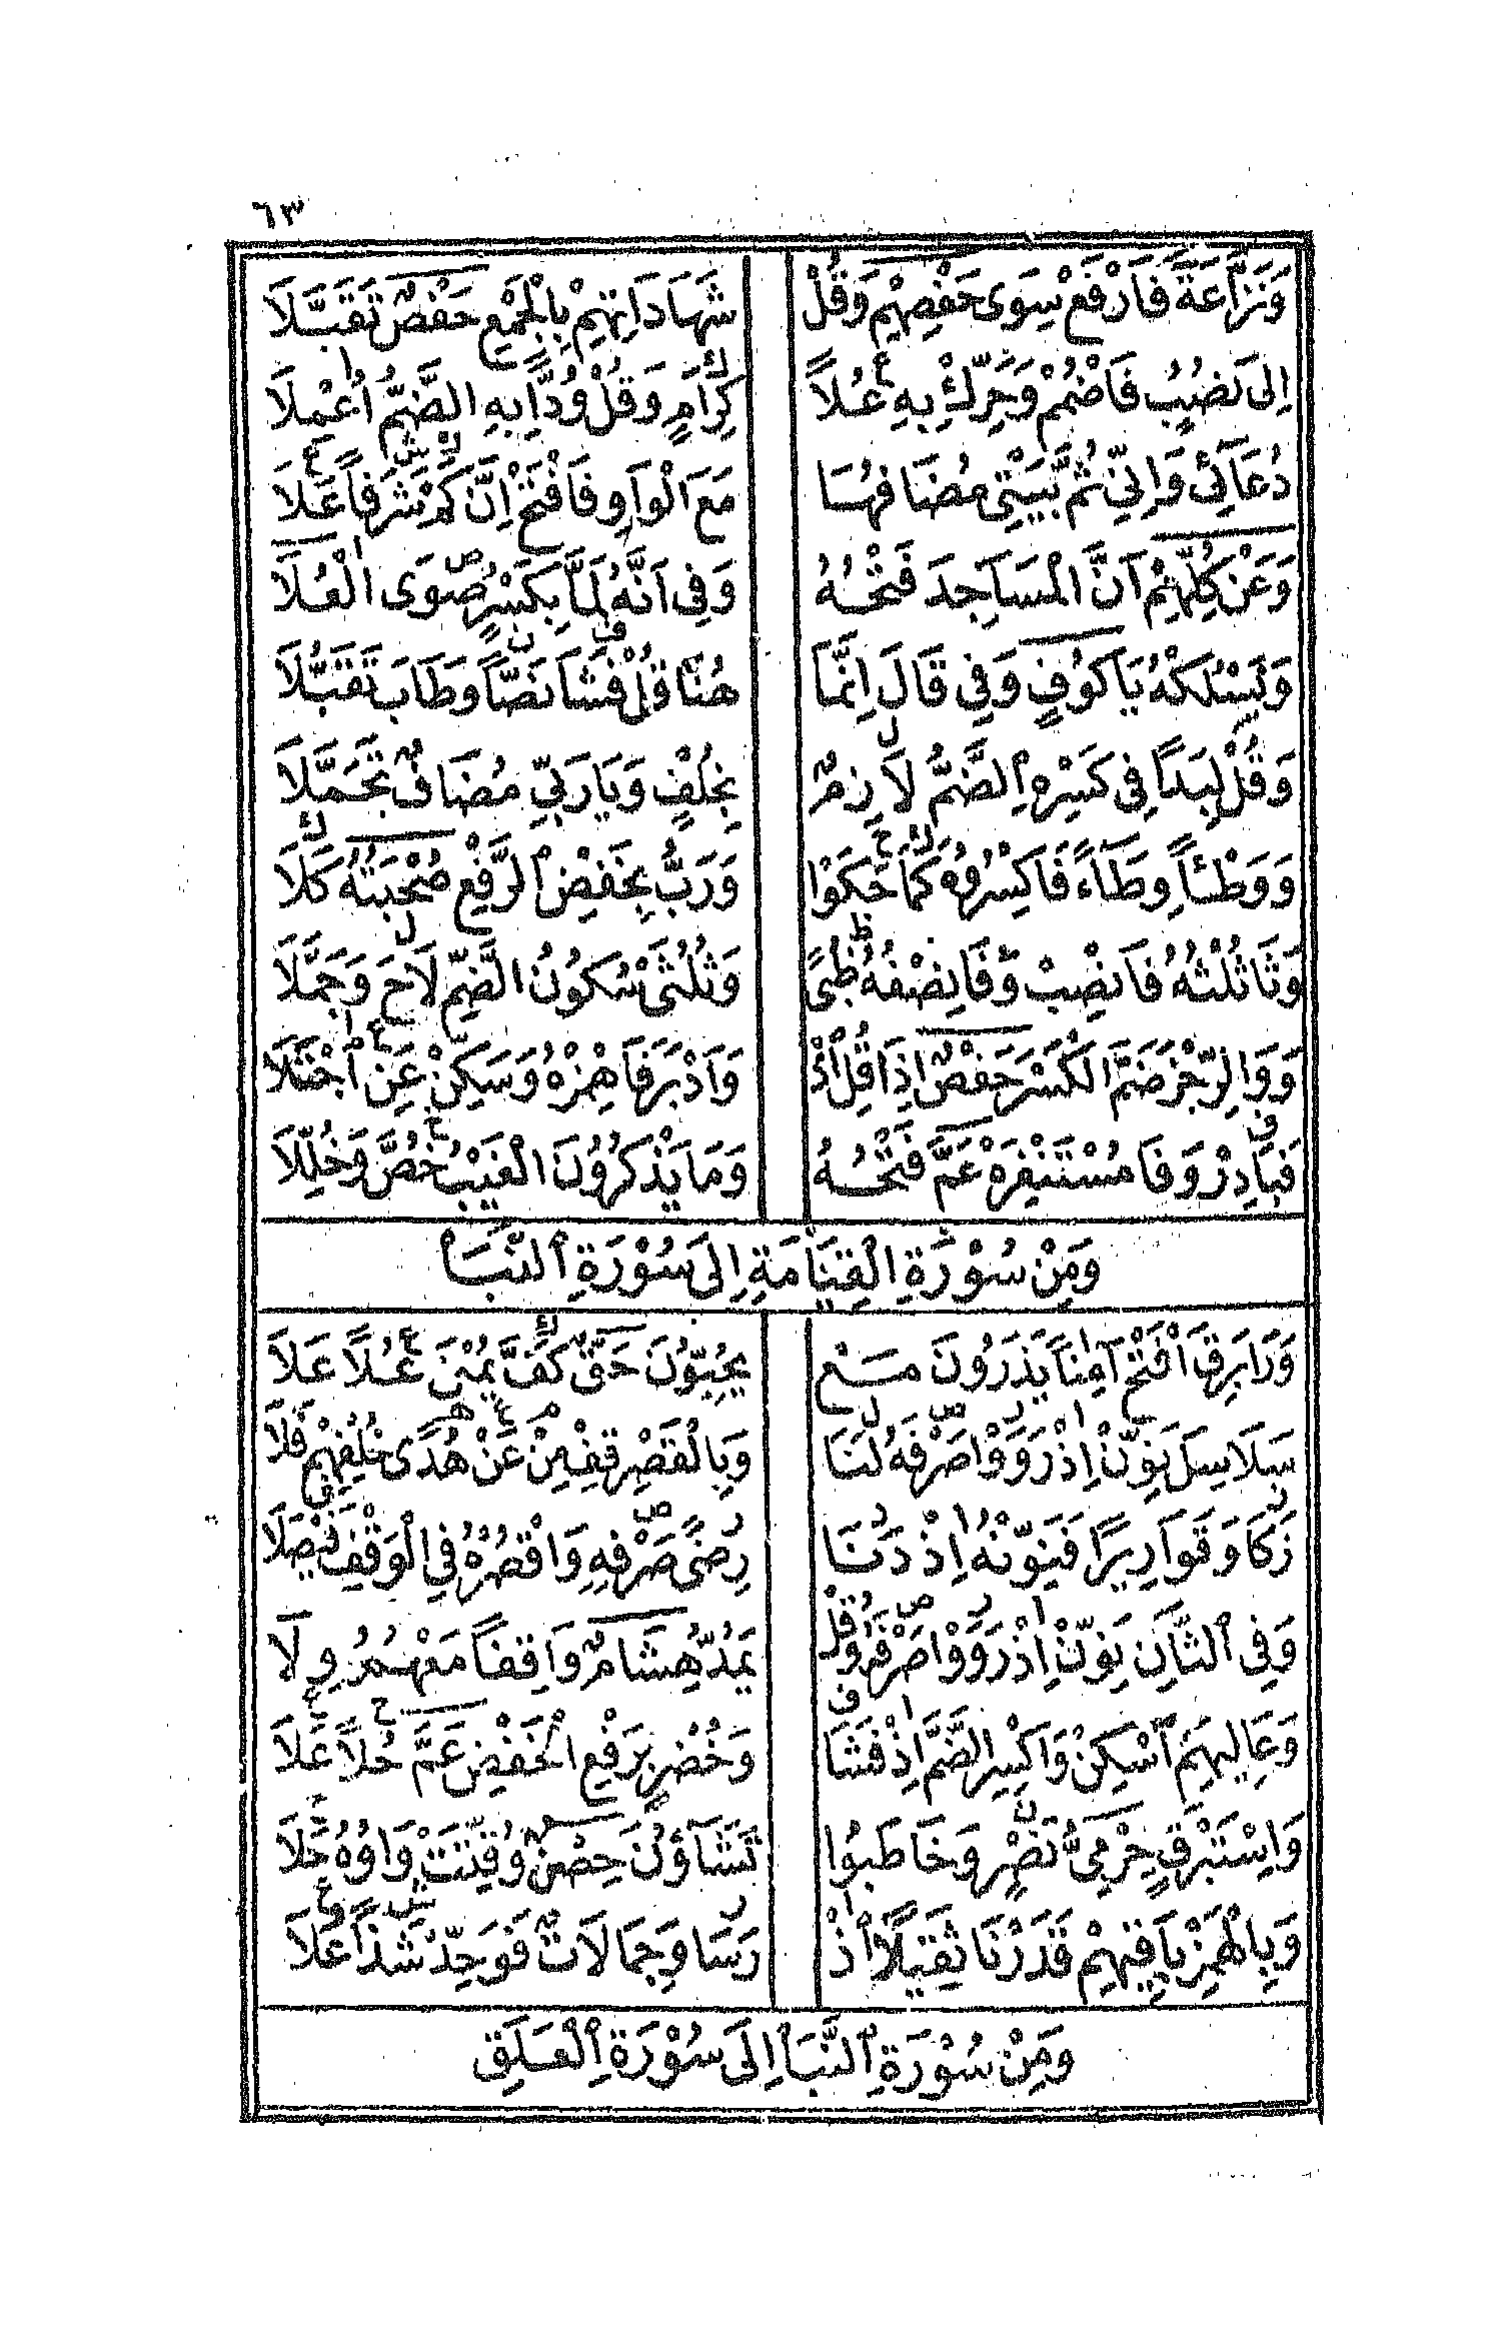 ٦٣
وَنَزَّاعَةً فَارْفَعْ سِوَى حَفْصِهِمْ وَقُلْ شَهَادَاتِهِمْ بِالْجَمْعِ حَفْصٌ تَقَبَّلَا
اِلَى نُصُبٍ فَاضْمُمْ وَحَرِّكْ بِهِ عُلاً كِرَامٍ وَقُلْ وُدًّا بِهِ الضَّمُّ اُعْمِلَا
دُعَآئِى وَاِنِّى ثُمَّ بَيْتِى مُضَافُهَا مَعَ الْوَاوِ فَافْتَحْ اِنَّ كَمْ شَرَفاً عَلَا
وَعَنْ كُلِّهِمْ اَنَّ الْمَسَاجِدَ فَتْحُهُ وَفِى اَنَّهُ لَمَّا بِكَسْرٍ صُوَى الْعُلَا
وَيَسْلُكْهُ يَا كُوفٍ وَفِى قَالَ اِنَّمَا هُنَا قُلْ فَشَا نَصًّا وَطَابَ تَقَبُّلَا
وَقُلْ لِبَداً فِى كَسْرِهِ الضَّمُّ لَازِمٌ بِخُلْفٍ وَيَا رَبِّى مُضَافٌ تَجَمَّلَا
وَوَطْئاً وِطَآءً فَاكْسِرُوهُ كَمَا حَكَوْا وَرَبُّ بِخَفْضِ الرَّفْعِ صُحْبَتُهُ كَلَا
وَثَا ثُلْثِهُ فَانْصِبْ وَفَا نِصْفِهُ ظُبىً وَثُلْثَىْ سُكُونُ الضَّمِّ لَاحَ وَجَمَّلَا
وَوَالرِّجْزَ ضَمَّ الْكَسْرَ حَفْصٌ اِذَا قُلِ اذْ وَاَدْبَرَ فَاهْمِزْهُ وَسَكِّنْ عَنِ اجْتِلَا
فَبَادِرْ وَفَا مُسْتَنْفِرَهْ عَمَّ فَتْحُهُ وَمَا يَذْكُرُونَ الْغَيْبُ خُصَّ وَخُلِّلَا
وَمِنْ سُوْرَةِ الْقِيَامَةِ اِلَى سُوْرَةِ النَّبَأ
وَرَا بَرِقَ افْتَحْ آمِناً يَذَرُونَ مَعْ يُحِبُّوْنَ حَقٌّ كَفَّ يُمْنَى عُلًا عَلَا
سَلَاسِلَ نَوِّنْ اِذْ رَوَوْا صَرْفَهُ لَنَا وَبِالْقَصْرِ قِفْ مِنْ عَنْ هُدًى خُلْفُهُمْ فَلَا
زَكَا وَقَوَارِيرًا فَنَوِّنْهُ اِذْ دَنَا رِضىً صَرْفِهِ وَاقْصُرْهُ فِى الْوَقْفِ فَيْصَلَا
وَفِى الثَّانِ نَوِّنْ اِذْ رَوَوْا صَرْفَهُ وَقُلْ يَمُدُّ هِشَامٌ وَاقِفاً مَعْهُمُ وِلَا
وَعَالِيْهِمُ اسْكِنْ وَاكْسِرِ الضَّمَّ اِذْ فَشَا وَخُضْرٌ بِرَفْعِ الْخَفْضِ عَمَّ حُلاً عَلَا
وَاِسْتَبْرَقٍ حِرْمِىُّ نَصْرٍ وَخَاطَبُوا تَشَآؤُنَ حِصْنٌ وُقِّتَتْ وَاوُهُ حَلَا
وَبِالْهَمْزِ بَاقِيْهِمْ قَدَرْنَا ثَقِيْلاً اذْ رَسَا وَجِمَالَاتٌ فَوَحِّدْ شَذاً عَلَا
وَمِنْ سُوْرَةِ النَّبَأ اِلَى سُوْرَةِ الْعَلَقِ